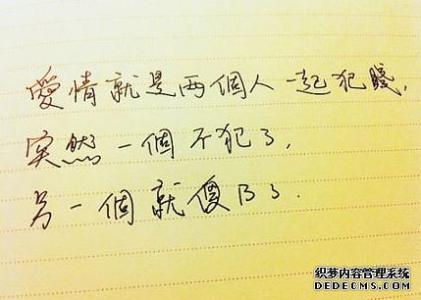 愛情就是两個人一起犯賤,
突然一個不犯了,
另一個就傻B了.
织梦内容管理系统
DEDECMS.COM